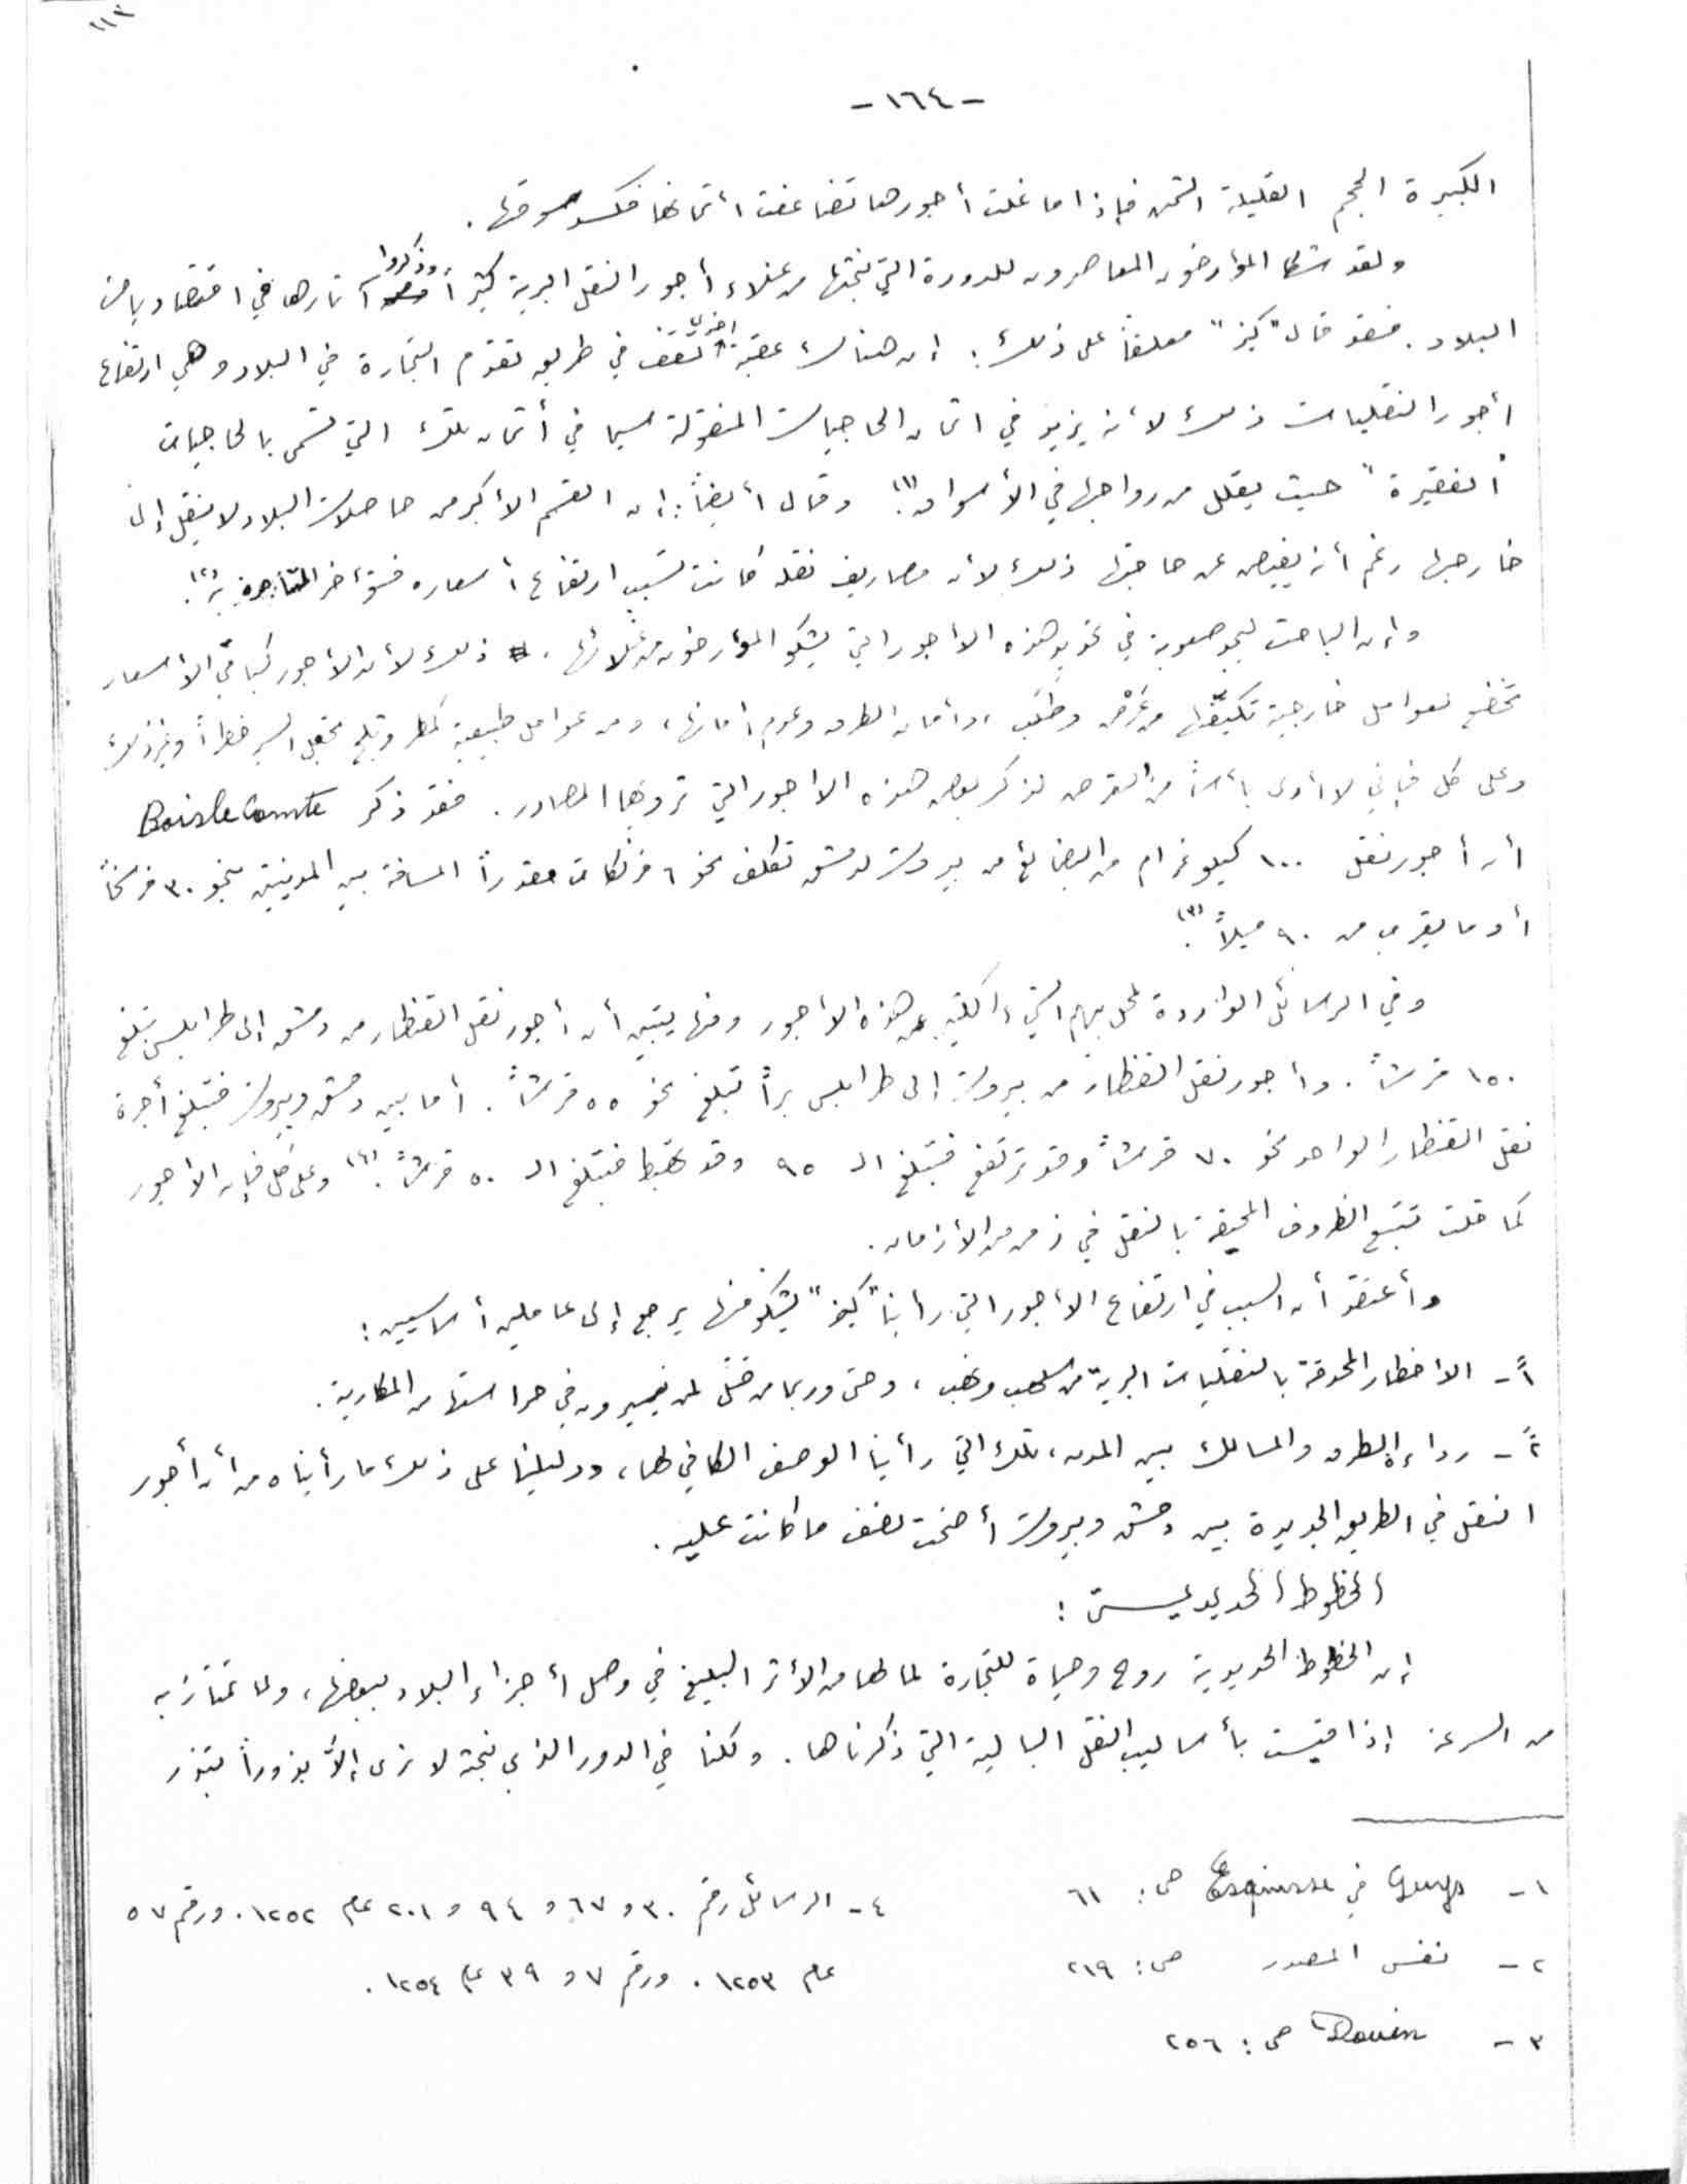 ١١٣
- ١٦٤ -
الكبيرة الحجم القليلة الثمن فإذا ما غلت أجورها تضاعفت أثمانها فكسد سوقها .
ولقد شكا المؤرخون المعاصرون للدورة التي نبحثها من غلاء أجور النقل البرية كثيراً وذكروا آثارها في اقتصاديات
البلاد . فقد قال "كيز" معلقاً على ذلك : إن هناك عقبة أخرى تقف في طريق تقدم التجارة في البلاد وهي ارتفاع
أجور النقليات ذلك لأنه يزيد في اثمان الحاجيات المنقولة سيما في أثمان تلك التي تسمى بالحاجيات
"الفقيرة" حيث يقلل من رواجها في الأسواق (١). وقال أيضاً : إن القسم الأكبر من حاصلات البلاد لا ينقل إلى
خارجها رغم أنه يفيض عن حاجتها ذلك لأن مصاريف نقله كانت تسبب ارتفاع أسعاره فتؤخر المتاجرة به (٢).
وإن الباحث ليجد صعوبة في تحديد هذه الأجور التي يشكو المؤرخون من غلائها . ذلك لأن الأجور كباقي الأسعار
تخضع لعوامل خارجية تكيّفها من عَرْض وطلَب ، وأمان الطرق وعدم أمانها ، ومن عوامل طبيعية كمطر وثلج تجعل السير خطراً وغير ذلك
وعلى كل فإني لا أرى بأساً من التعرض لذكر بعض هذه الأجور التي ترويها المصادر . فقد ذكر Boislecomte
أن أجور نقل ١٠٠ كيلو غرام من البضائع من بيروت لدمشق تكلف نحو ٦ فرنكات مقدراً المسافة بين المدينتين بنحو ٣٠ فرسخاً
أو ما يقرب من ٩٠ ميلاً (٣).
وفي الرسائل الواردة لمحل بهم الشيء الكثير عن هذه الأجور ومنها يتبين أن أجور نقل القنطار من دمشق إلى طرابلس تبلغ
١٥٠ قرشاً . وأجور نقل القنطار من بيروت إلى طرابلس براً تبلغ نحو ٥٥ قرشاً . أما بين دمشق وبيروت فتبلغ أجرة
نقل القنطار الواحد نحو ٧٠ قرشاً وقد ترتفع فتبلغ الـ ٩٥ وقد تهبط فتبلغ الـ ٥٠ قرشاً (٤). وعلى كل فإن الأجور
كما قلت تتبع الظروف المحيقة بالنقل في زمن من الأزمان .
وأعتقد أن السبب في ارتفاع الأجور التي رأينا "كيز" يشكو منها يرجع إلى عاملين أساسيين :
١ً - الأخطار المحدقة بالنقليات البرية من سلب ونهب ، وحتى وربما من قتل لمن يسيرون في حراستها من المكارية .
٢ً - رداءة الطرق والمسالك بين المدن ، تلك التي رأينا الوصف الكافي لها ، ودليلنا على ذلك ما رأيناه من أن أجور
النقل في الطريق الجديدة بين دمشق وبيروت أضحت نصف ما كانت عليه .
الخطوط الحديدية :
إن الخطوط الحديدية روح وحياة للتجارة لما لها من الأثر البليغ في وصل أجزاء البلاد ببعضها ، ولما تمتاز به
من السرعة إذا قيست بأساليب النقل البالية التي ذكرناها . ولكنا في الدور الذي نبحثه لا نرى إلّا بذوراً تبذر
١ - Guys في Esquisse ص : ٦١
٢ - نفس المصدر ص : ٢١٩
٣ - Douin ص : ٢٥٦
٤ - الرسائل رقم ٣٠ و ٦٧ و ٩٤ و ٢٠١ عام ١٢٥٢ . ورقم ٥٧
عام ١٢٥٣ . ورقم ٧ و ٣٩ عام ١٢٥٤ .